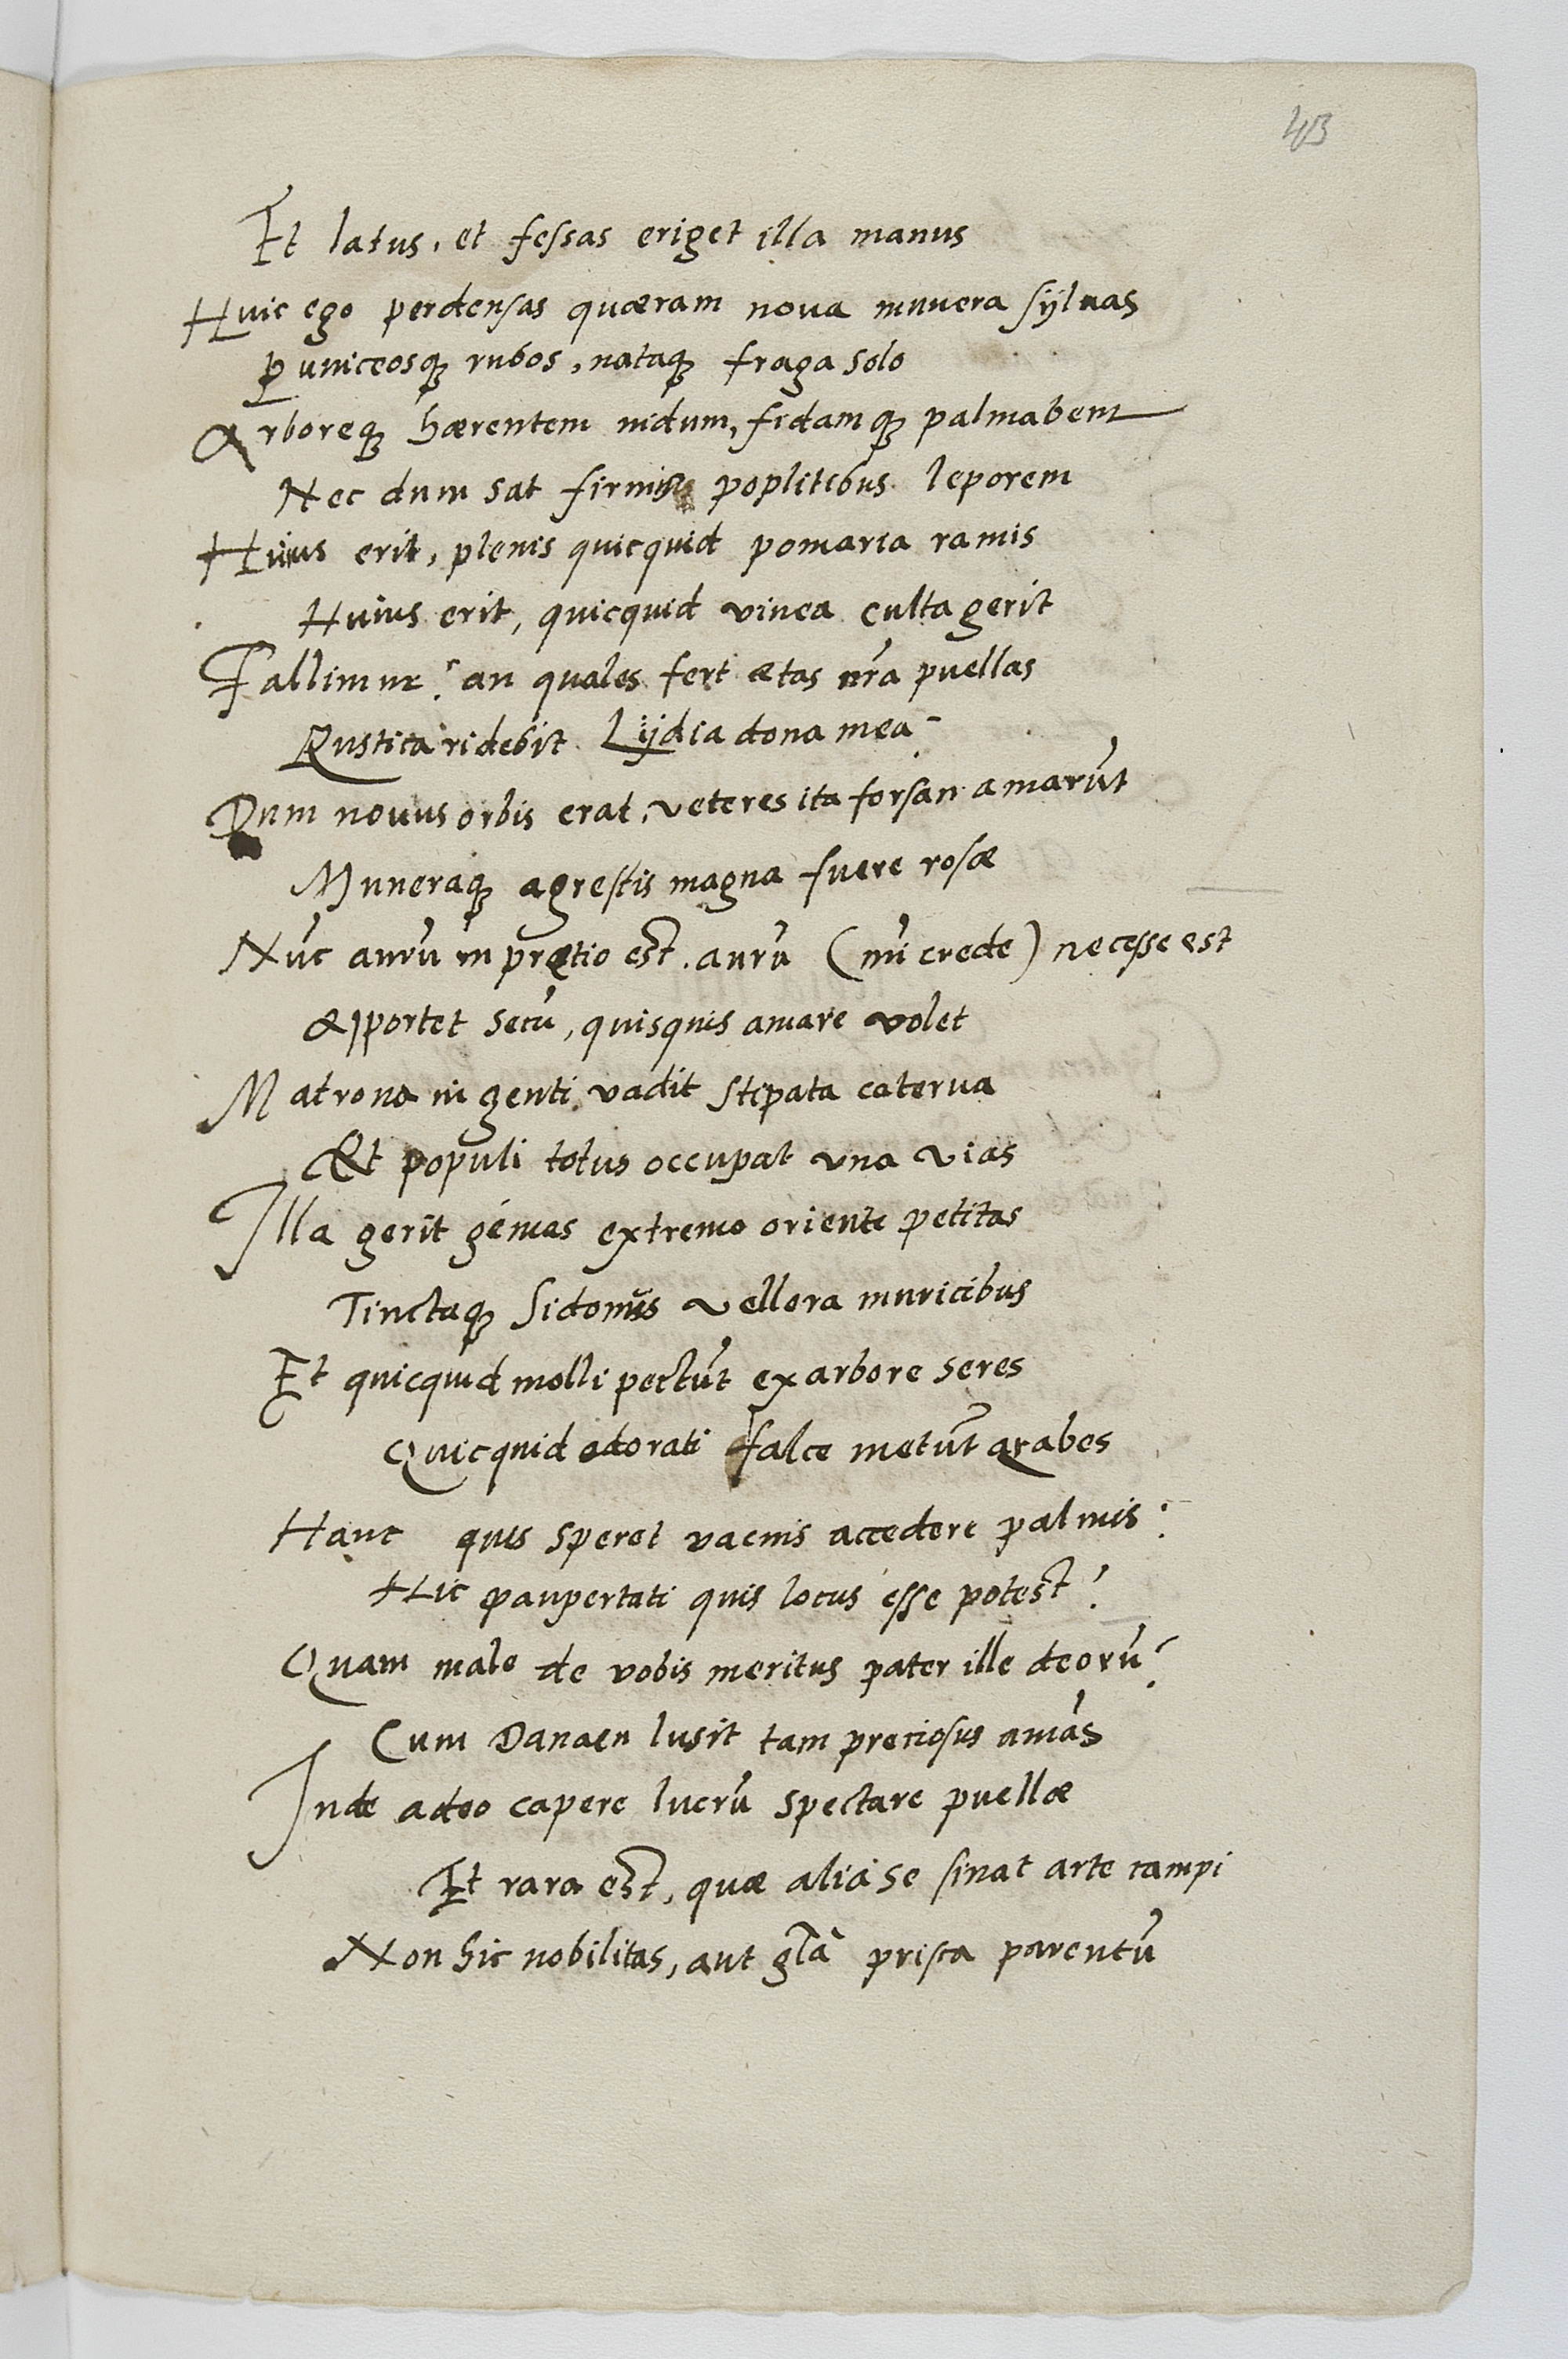 43
Et latus, et fessas eriget illa manus
Huic ego perdensas quæram noua munera sÿluas
Puniceosq́ꝫ rubos, nataqꝫ fraga solo
Arboreqꝫ hærentem nidum, fidamqꝫ palmabem
Nec dum sat firmis poplitibus leporem
Huius erit, plenis quicquid pomaria ramis
Huius erit, quicquid vinea culta gerit
Fallimur? an quales fert ætas nr̃a puellas
Rustica ridebit Lÿdia dona mea
Dum nouus orbis erat, veteres ita forsan amarūt
Muneraqꝫ agrestis magna fuere rosæ
Nūc aurū in prętio est. aurū (mi crede) necesse est
Apportet secū, quisquis amare volet
Matrona ingenti vadit stipata caterua
Et populi totus occupat una vias
Illa gerit gēmas extremo oriente petitas
Tinctaqꝫ Sidonijs vellera muricibus
Et quicquid molli pectūt ex arbore seres
Quicquid odorati falce metūt arabes
Hanc quis speret vacuis accedere palmis?
Hic paupertati quis locus esse potest?
Quam male de vobis meritus pater ille deorū?
Cum Danaen lusit tam preciosus amās
Inde adeo capere lucrū spectare puellæ
Et rara est, quæ alia se sinat arte capi
Non hic nobilitas, aut gl̃a prisca parentū